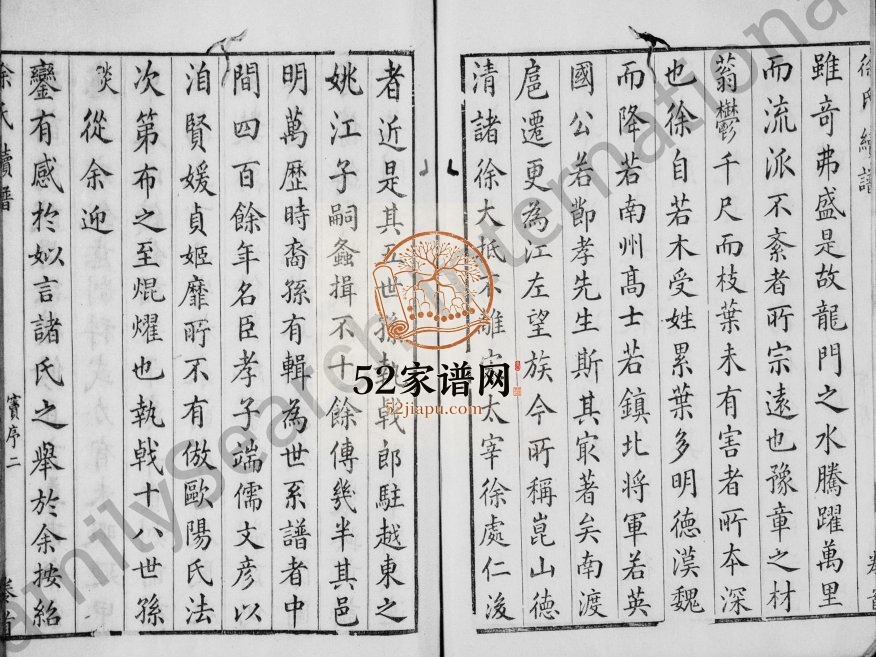 徐氏續譜
雖奇弗盛是故龍門之水騰躍萬里
而流派不紊者所宗遠也豫章之材
蓊鬱千尺而枝葉未有害者所本深
也徐自若木受姓累葉多明德漢魏
而降若南州高士若鎮北將軍若英
國公若節孝先生斯其㝡著矣南渡
扈遷更為江左望族今所稱崑山德
清諸徐大抵不離太宰徐處仁後
者近是其五世孫執戟郎駐越東之
姚江子嗣螽揖不十餘傳幾半其邑
明萬歷時裔孫有輯為世系譜者中
間四百餘年名臣孝子端儒文彥以
洎賢媛貞姬靡所不有倣歐陽氏法
次第布之至焜燿也執戟十八世孫
炎從余迎
鑾有感於姒言諸氏之舉於余按紹
徐氏續譜
寶序二
卷首
卷首
52家谱网
52jiapu.com
FamilySearch International